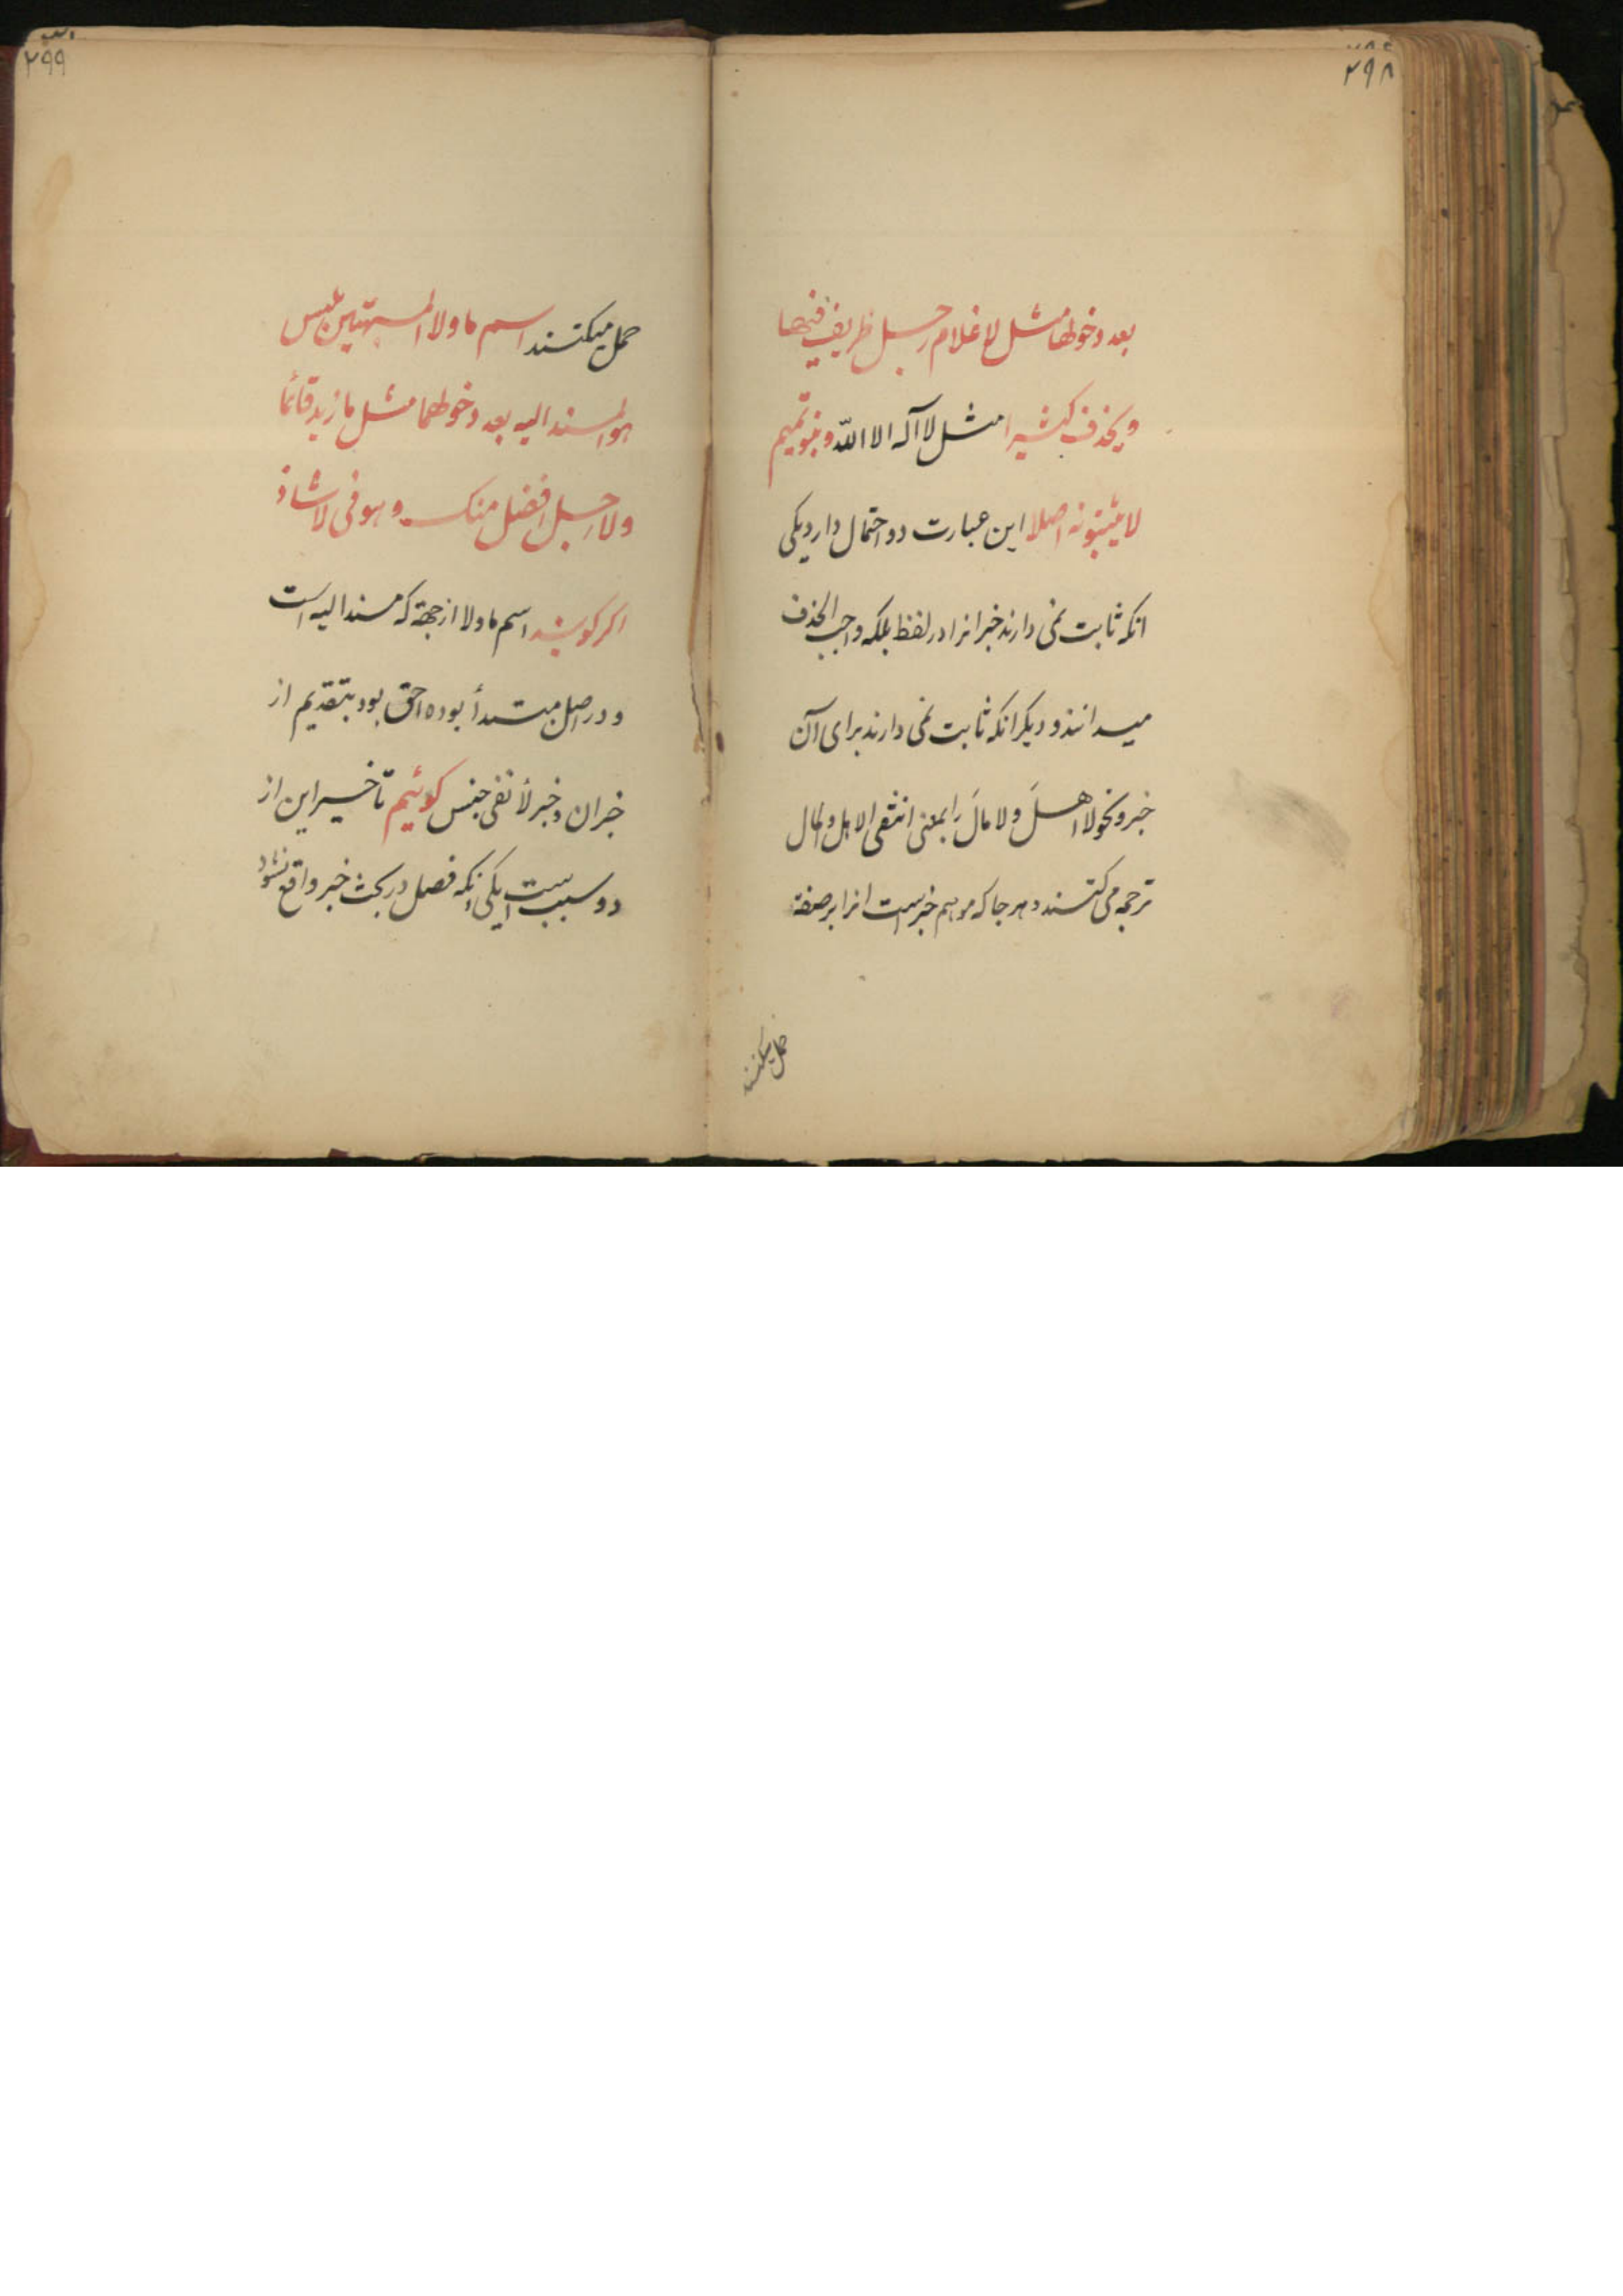 ۲۹۸
بعد دخولها مثل لا غلام رجل ظریف فیها
و یحذف کثیرا مثل لا آله الا الله و بنو تمیم
لا یثبتونه اصلا این عبارت دو احتمال دارد یکی
انکه ثابت نمی دارند خبر انرا در لفظ بلکه واجب الحذف
میدانند و دیکر انکه ثابت نمی دارند برای آن
خبر و نحو لا اهلَ و لا مالَ را بمعنی انتفی الاهل و المال
ترجمه می کنند و هر جا که موهم خبر است انرا بر صفة
حمل میکنند
۲۹۹
حمل میکنند اسم ما و لا المشبهتین بلیس
هو المسند الیه بعد دخولهما مثل ما زید قائما
و لا رجل افضل منک و هو فی لا شاذ
اکر کویند اسم ما و لا از جهة که مسند الیه است
و در اصل مبتدأ بوده احق بود بتقدیم از
خبر ان و خبر لأ نفی جنس کوئیم تاخیر این از
دو سبب است یکی انکه فصل در بحث خبر واقع نشود